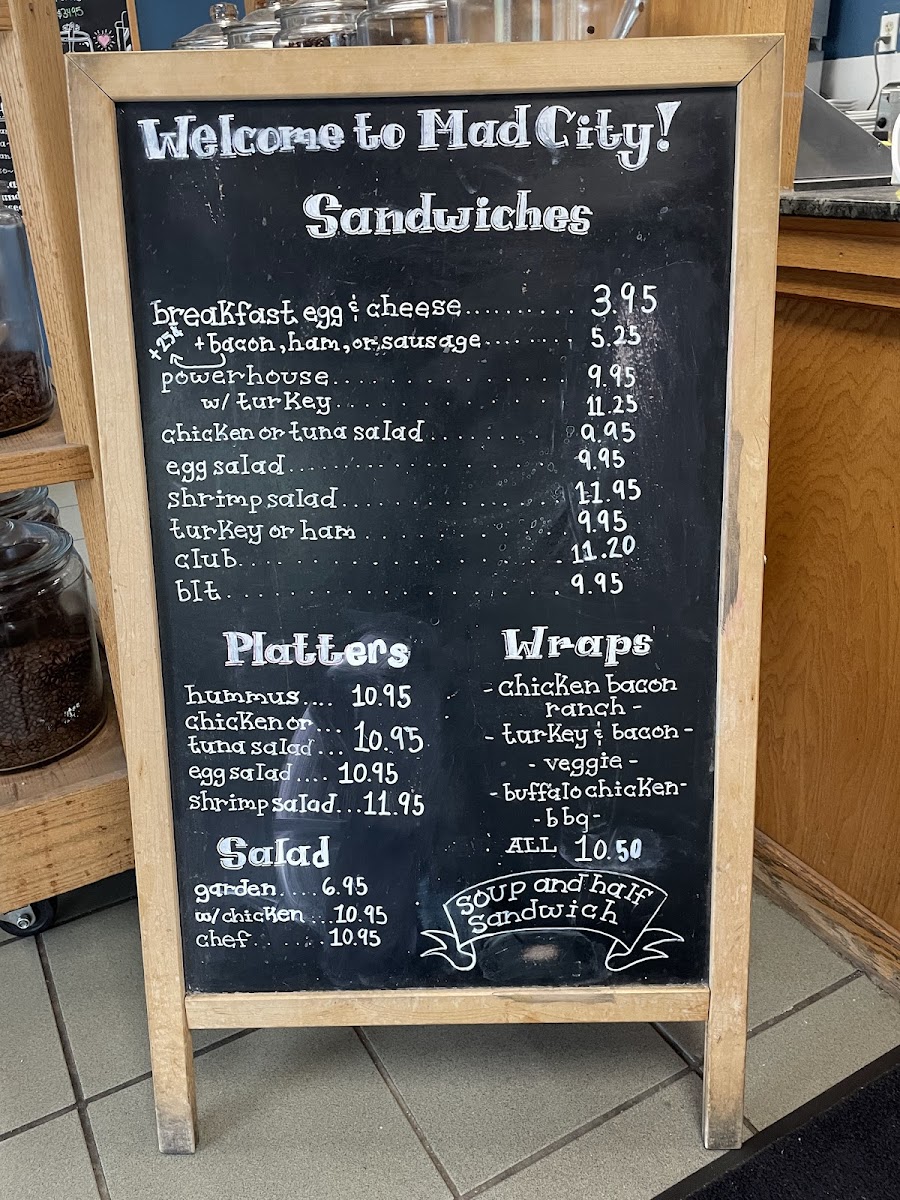 Welcome to Mad City!
Sandwiches
breakfast egg & cheese.......... 3.95
+25¢
+bacon, ham, or sausage......... 5.25
powerhouse................ 9.95
w/ turkey................ 11.25
chicken or tuna salad........ 9.95
egg salad.................. 9.95
shrimp salad............... 11.95
turkey or ham.............. 9.95
club..................... 11.20
blt...................... 9.95
Platters
hummus.... 10.95
chicken or...
tuna salad... 10.95
egg salad.... 10.95
shrimp salad... 11.95
Salad
garden..... 6.95
w/chicken ... 10.95
chef....... 10.95
Wraps
- chicken bacon
ranch -
- turkey & bacon -
- veggie -
- buffalo chicken-
- bbq -
ALL 10.50
Soup and half
Sandwich